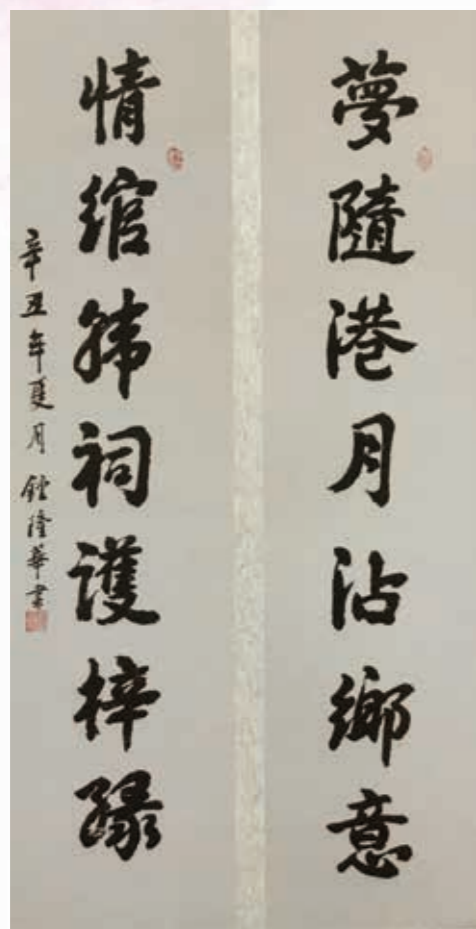 夢隨港月沾鄉意
情綰韓祠護梓緣
辛丑年夏月 鍾隆華書